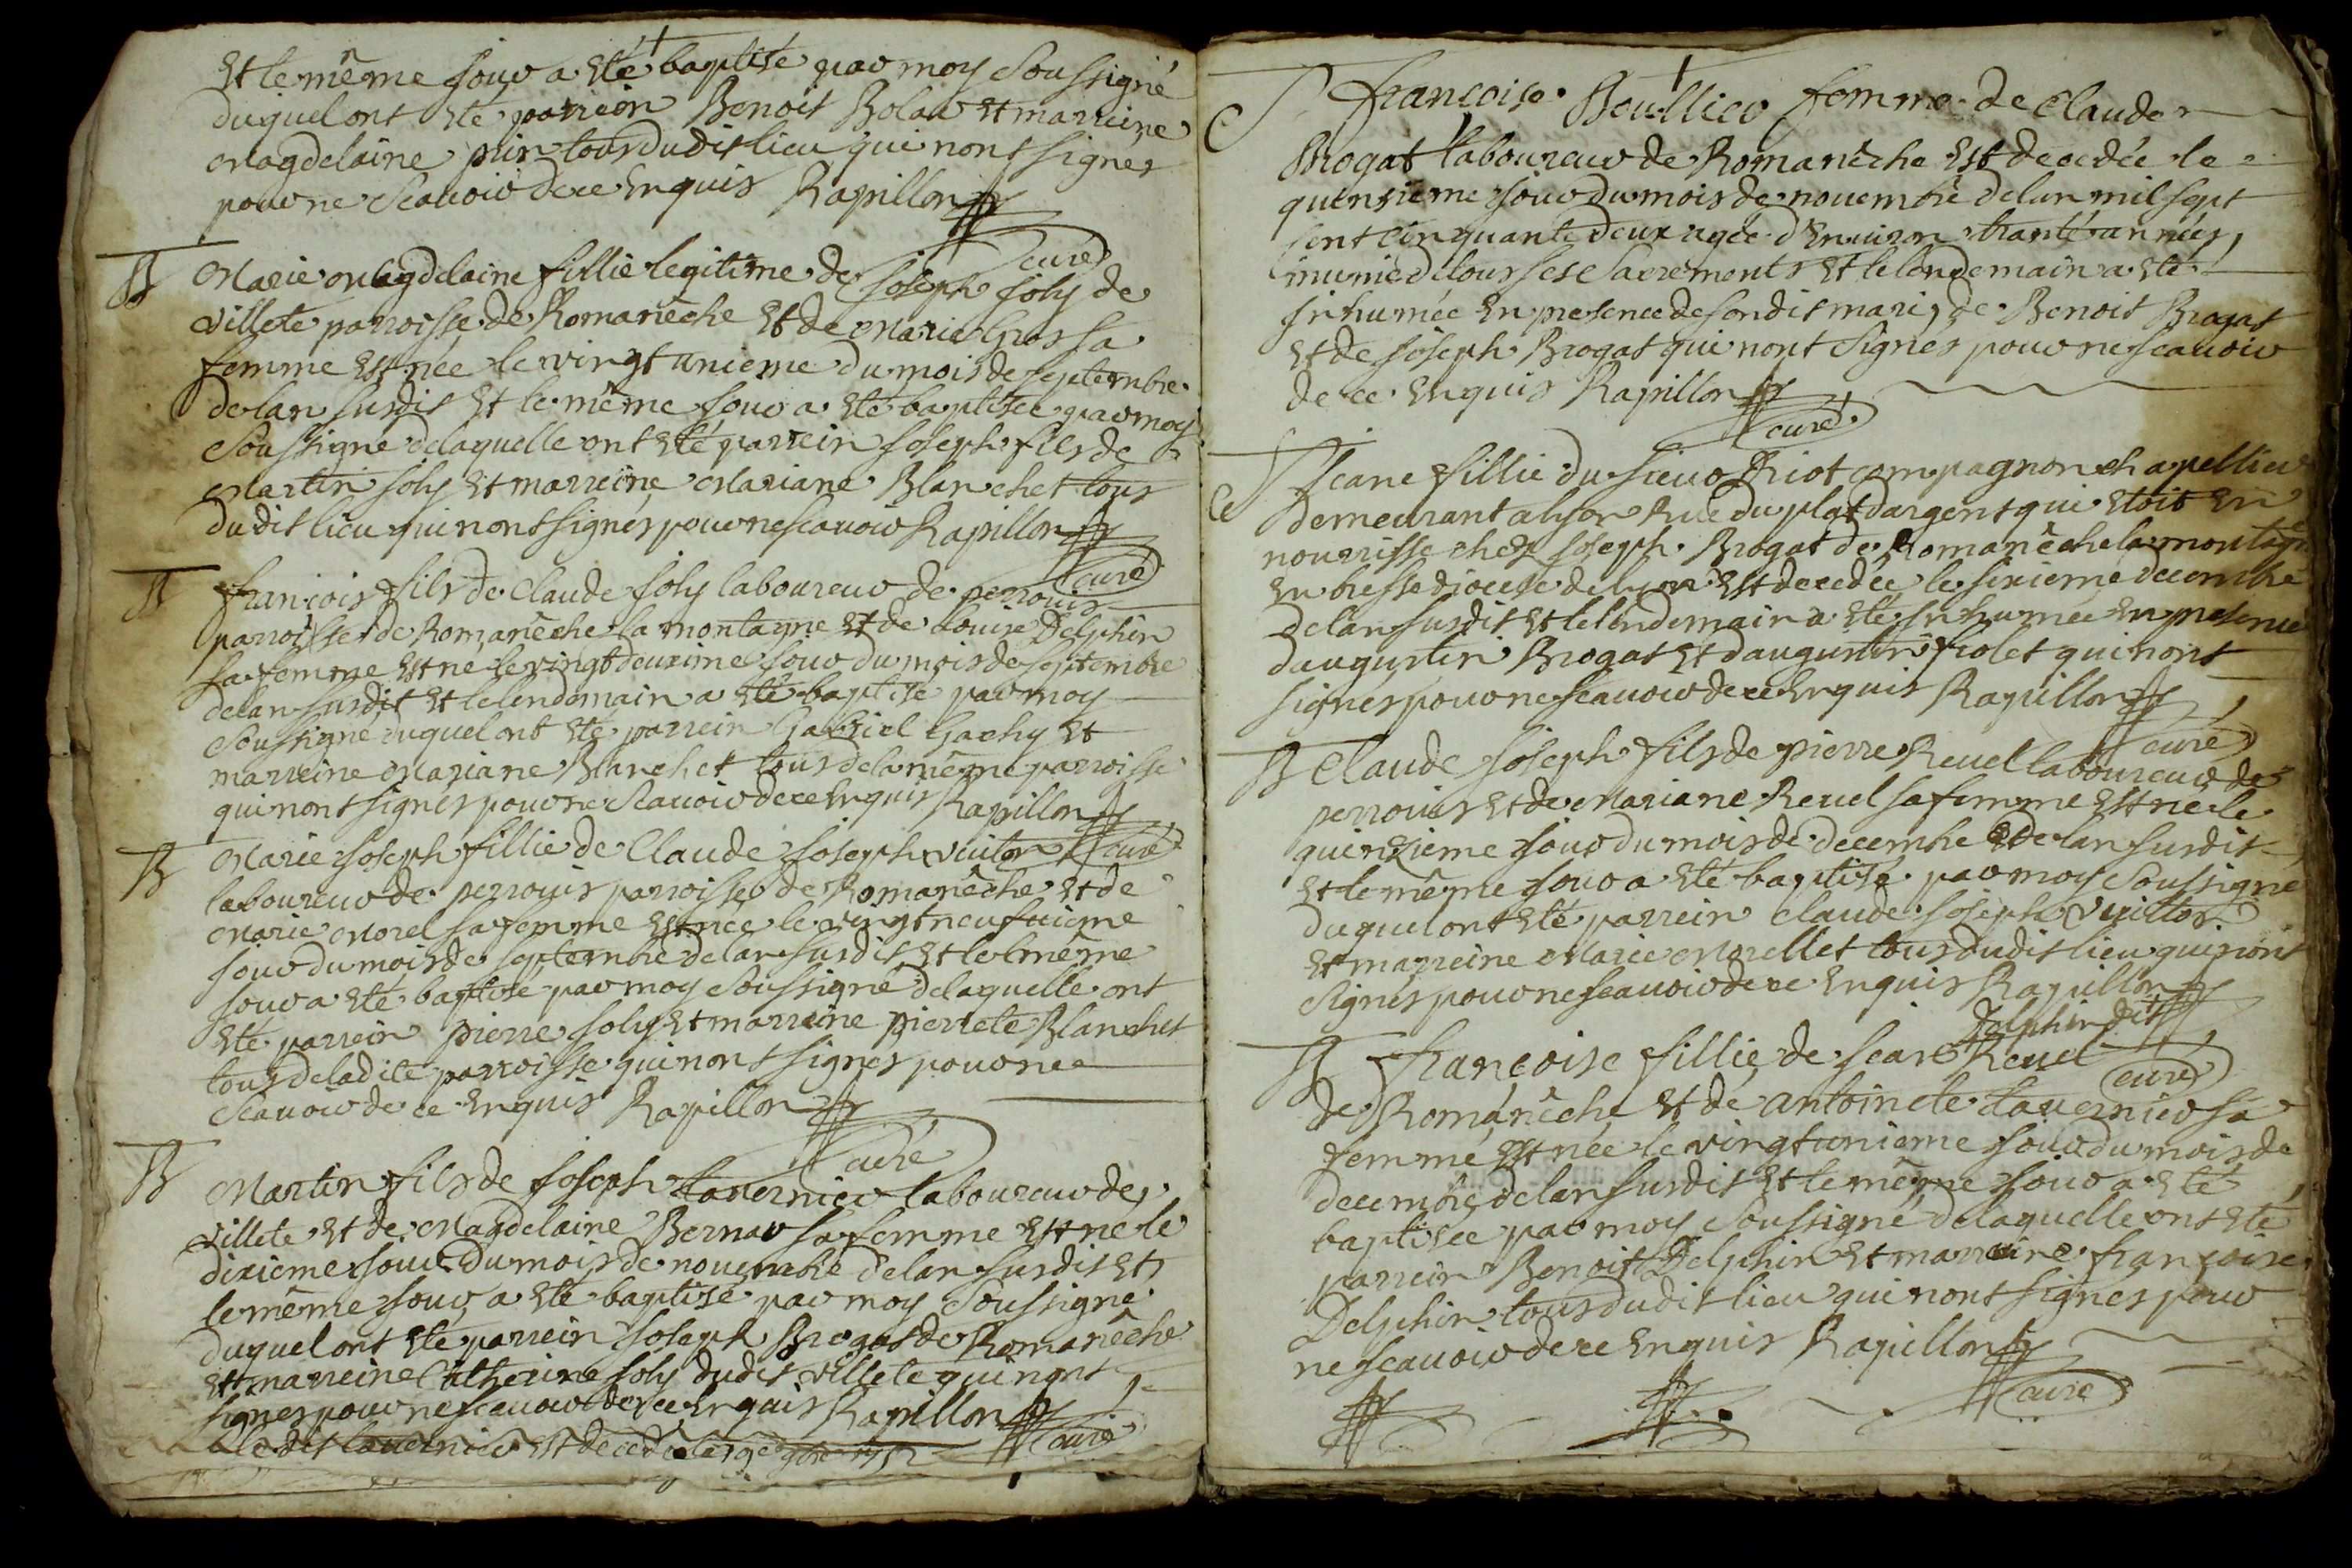 Et le même jour a Eté baptisé par moy Soussigné
duquel ont Eté parrein Benoit Bolar et marreine
Magdelaine tous dudit lieu qui nont signés
pour ne Scauoir de ce Enquis Rapillon
curé
B Marie Magdelaine fillie legitime de Joseph Joly de
villete parroisse de Romanêche Et de Marie Gros sa
femme Est née le vingt unieme du mois de septembre
de lan susdit Et le même jour a Eté baptisée par moy
Soussigné de laquelle ont Eté parrein Joseph fils de
Martin Joly Et marreine Mariane Blanchet tous
dudit lieu qui nont signés pour ne scauoir Rapillon
curé
B françois fils de Claude Joly laboureur de perrouis
parroisse de Romanêche la montagne Et de Louise Delphin
sa femme Est né le vingt deuxime jour du mois de septembre
de lan susdit Et le lendemain a Eté baptisé par moy
Soussigné duquel ont Eté parrein Gabriel Gachy Et
marreine Mariane Blanchet tous de la même parroisse
qui nont signés pour ne Scauoir de ce Enquis Rapillon
curé
B Marie Joseph fillie de Claude Joseph vuiton
laboureur de perrouis parroisse de Romanêche et de
Marie Morel sa femme Est née le vingt neufuieme
jour du mois de septembre de lan susdit Et le même
jour a Eté baptisé par moy Soussigné de laquelle ont
Eté parrein pierre Joly Et marreine pierrete Blanchet
tous de ladite parroisse qui nont signés pour ne
Scauoir de ce Enquis Rapillon
curé
B Martin fils de Joseph tauernier laboureur de
villete Et de Magdelaine Bernar sa femme Est né le
dixieme jour du mois de nouembre de lan susdit Et
le même jour a Eté baptisé par moy Soussigné
duquel ont Eté parrein Joseph Brogat de Romanêche
Et marreine Catherine Joly dudit villete qui nont
signés pour ne scauoir de ce Enquis Rapillon
curé
Ledit tauernier Est decedé le 9bre 1752
C françoise Boullier femme de Claude
Brogat laboureur de Romanêche Est decedée le
quinsieme jour du mois de nouembre de lan mil sept
sent cinquante deux agée d'Enuiron trante années
munie de tous ses Sacrements Et le lendemain a Eté
Inhumée En presence de son dit mari, de Benoit Brogat
Et de Joseph Brogat qui nont signés pour ne scauoir
de ce Enquis Rapillon
curé
C Jeane fillie du sieur Friot compagnon chapellier
demeurant a lyon Rue du plat dargent qui Etoit En
nourrisse chez Joseph Brogat de Romanêche la montagne
En bresse diocese de lyon Est decedée le sixieme decembre
de lan susdit Et le lendemain a Eté Inhumée En presence
daugustin Brogat Et daugustin friolet qui nont
signés pour ne scauoir de ce Enquis Rapillon
curé
B Claude Joseph fils de pierre Reuel laboureur de
perrouis Et de Mariane Reuel sa femme Est né le
quinsieme jour du mois de decembre de lan susdit
Et le même jour a Eté baptisé par moy Soussigné
duquel ont Eté parrein Claude Joseph vuiton
Et marreine Marie Morellet tous dudit lieu qui nont
signés pour ne scauoir de ce Enquis Rapillon
curé
Delphin dit
B françoise fillie de Jean Reuel
de Romanêche Et de antoinete tauernier sa
femme Est née le vingt unieme jour du mois de
decembre de lan susdit Et le même jour a Eté
baptisée par moy Soussigné de laquelle ont Eté
parrein Benoit Delphin Et marreine françoise
Delphin tous dudit lieu qui nont signés pour
ne scauoir de ce Enquis Rapillon
curé